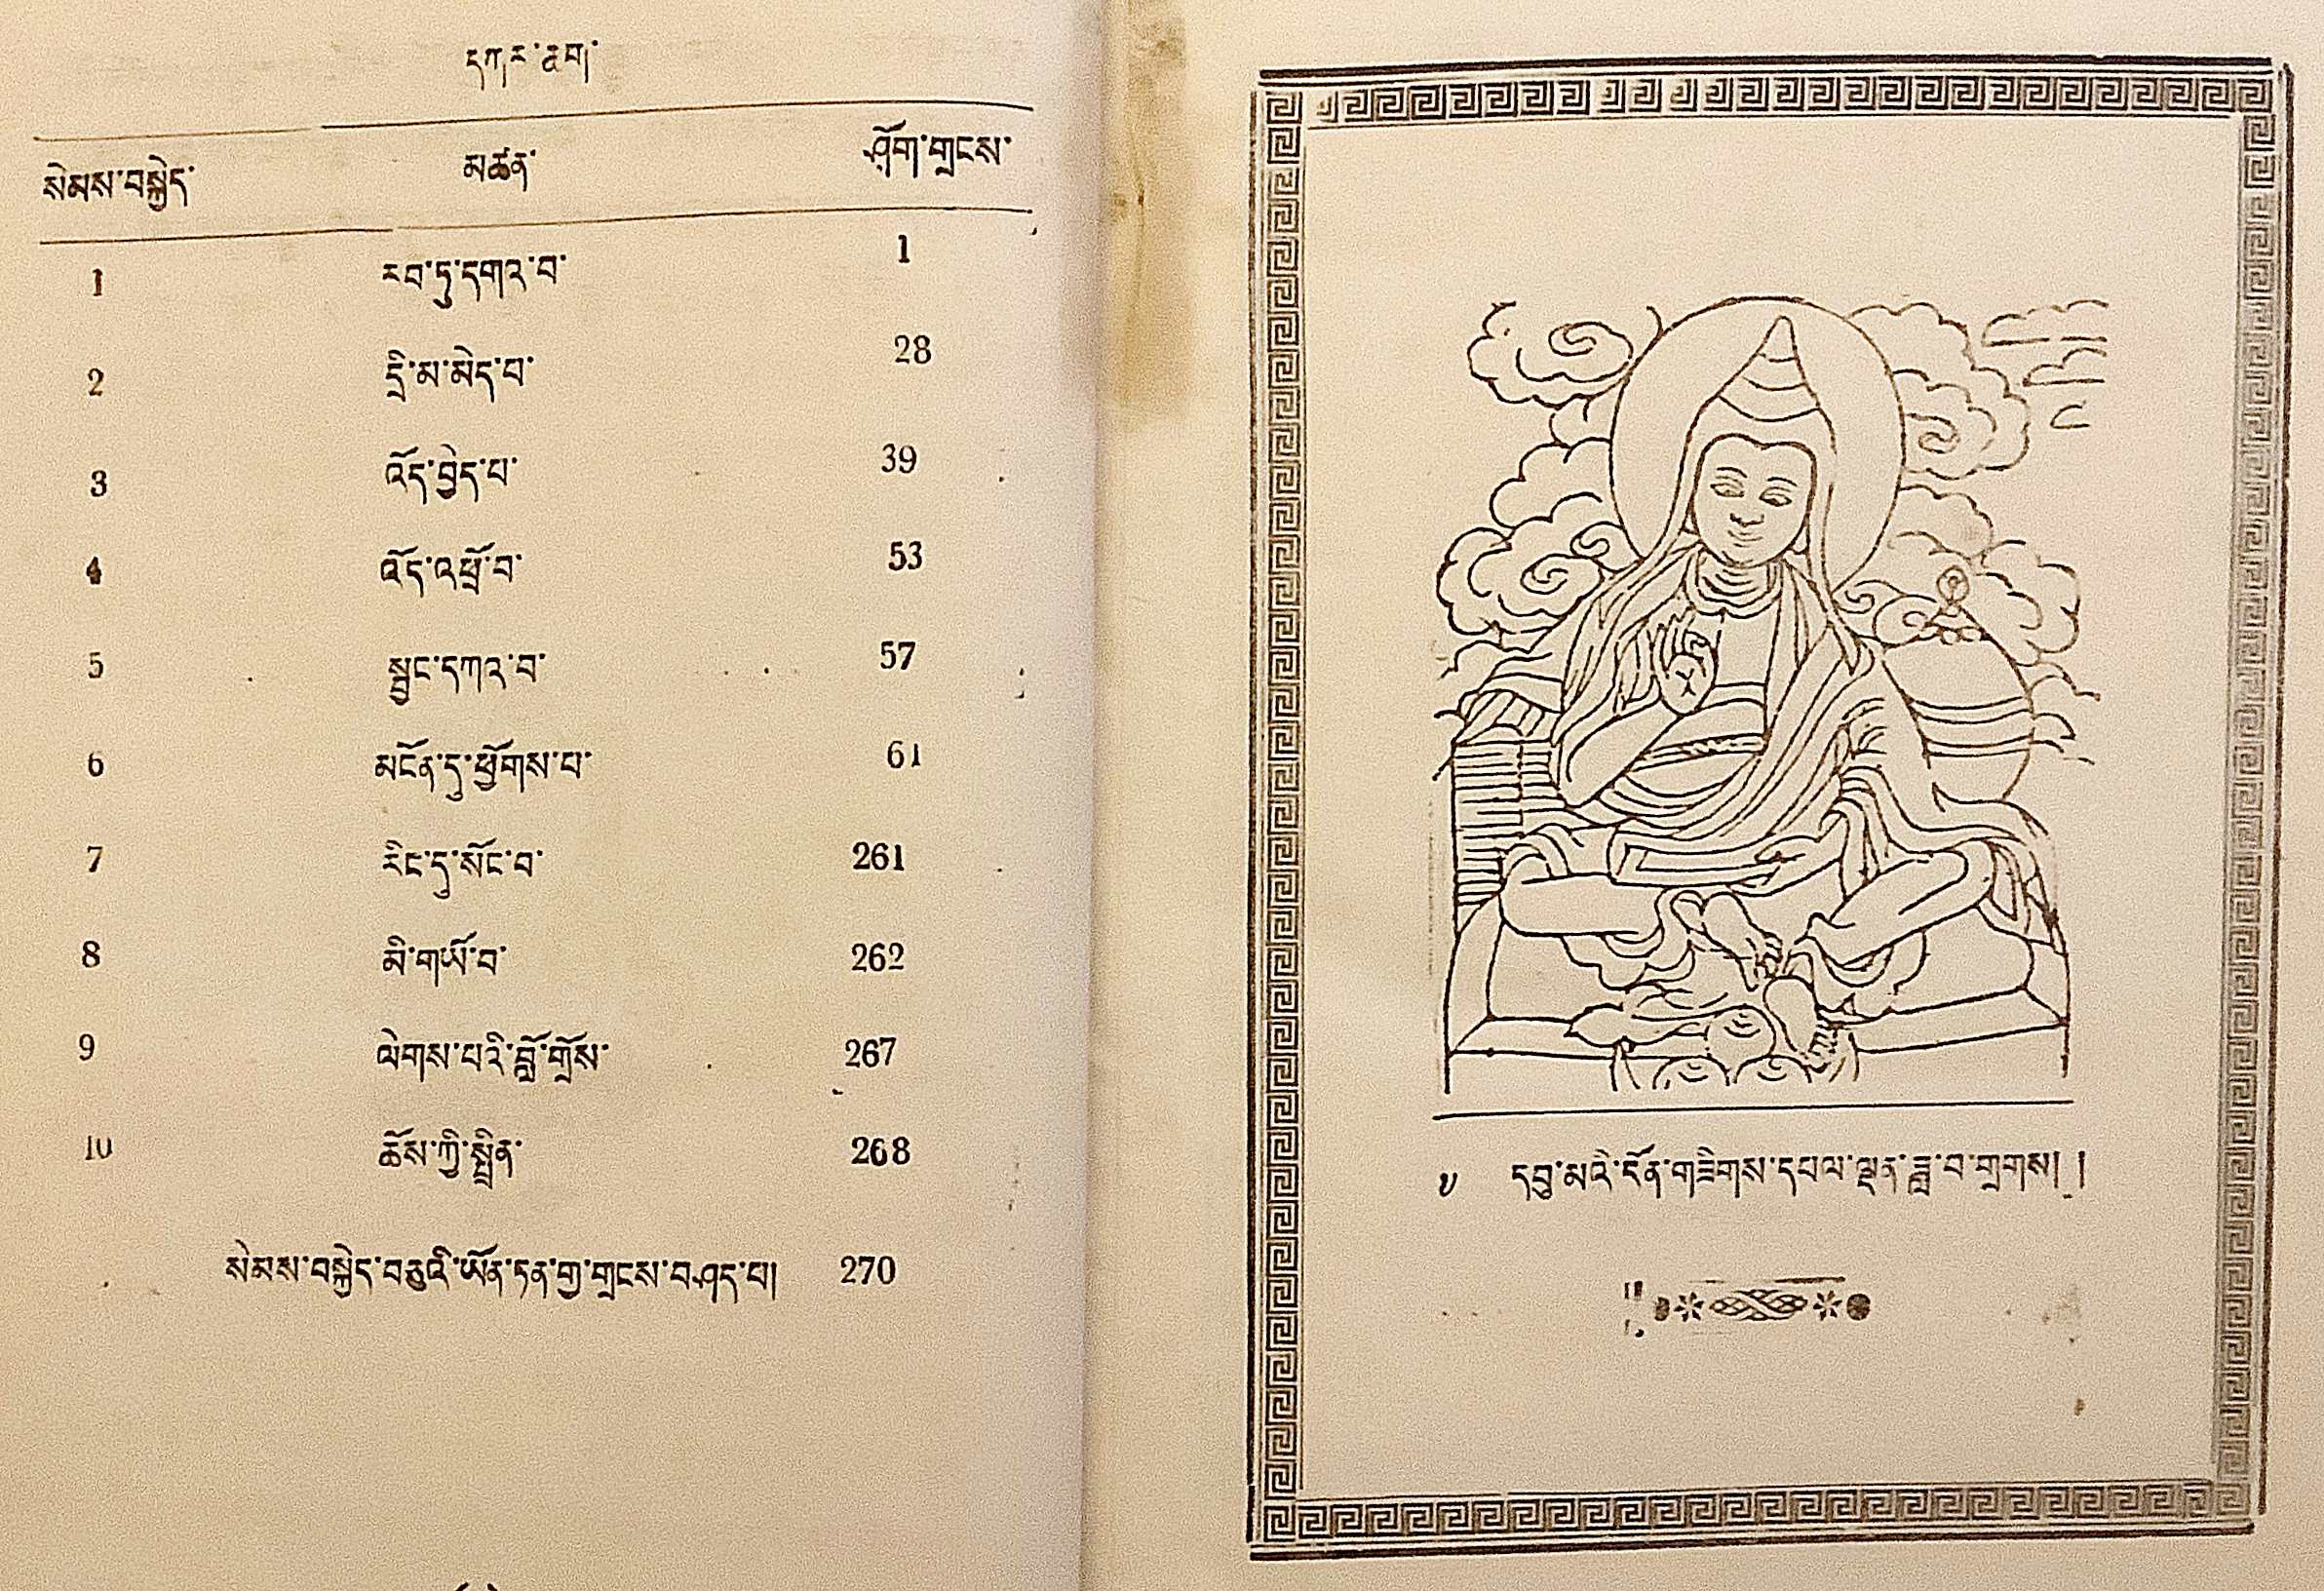 དཀར་ཆག
སེམས་བསྐྱེད་ མཚན་ ཤོག་གྲངས་
1 རབ་ཏུ་དགའ་བ་ 1
2 དྲི་མ་མེད་པ་ 28
3 འོད་བྱེད་པ་ 39
4 འོད་འཕྲོ་བ་ 53
5 སྦྱང་དཀའ་བ་ 57
6 མངོན་དུ་ཕྱོགས་པ་ 61
7 རིང་དུ་སོང་བ་ 261
8 མི་གཡོ་བ་ 262
9 ལེགས་པའི་བློ་གྲོས་ 267
10 ཆོས་ཀྱི་སྤྲིན་ 268
སེམས་བསྐྱེད་བཅུའི་ཡོན་ཏན་གྱ་གྲངས་བཤད་པ། 270
༧ དབུ་མའི་དོན་གཟིགས་དཔལ་ལྡན་ཟླ་བ་གྲགས། །